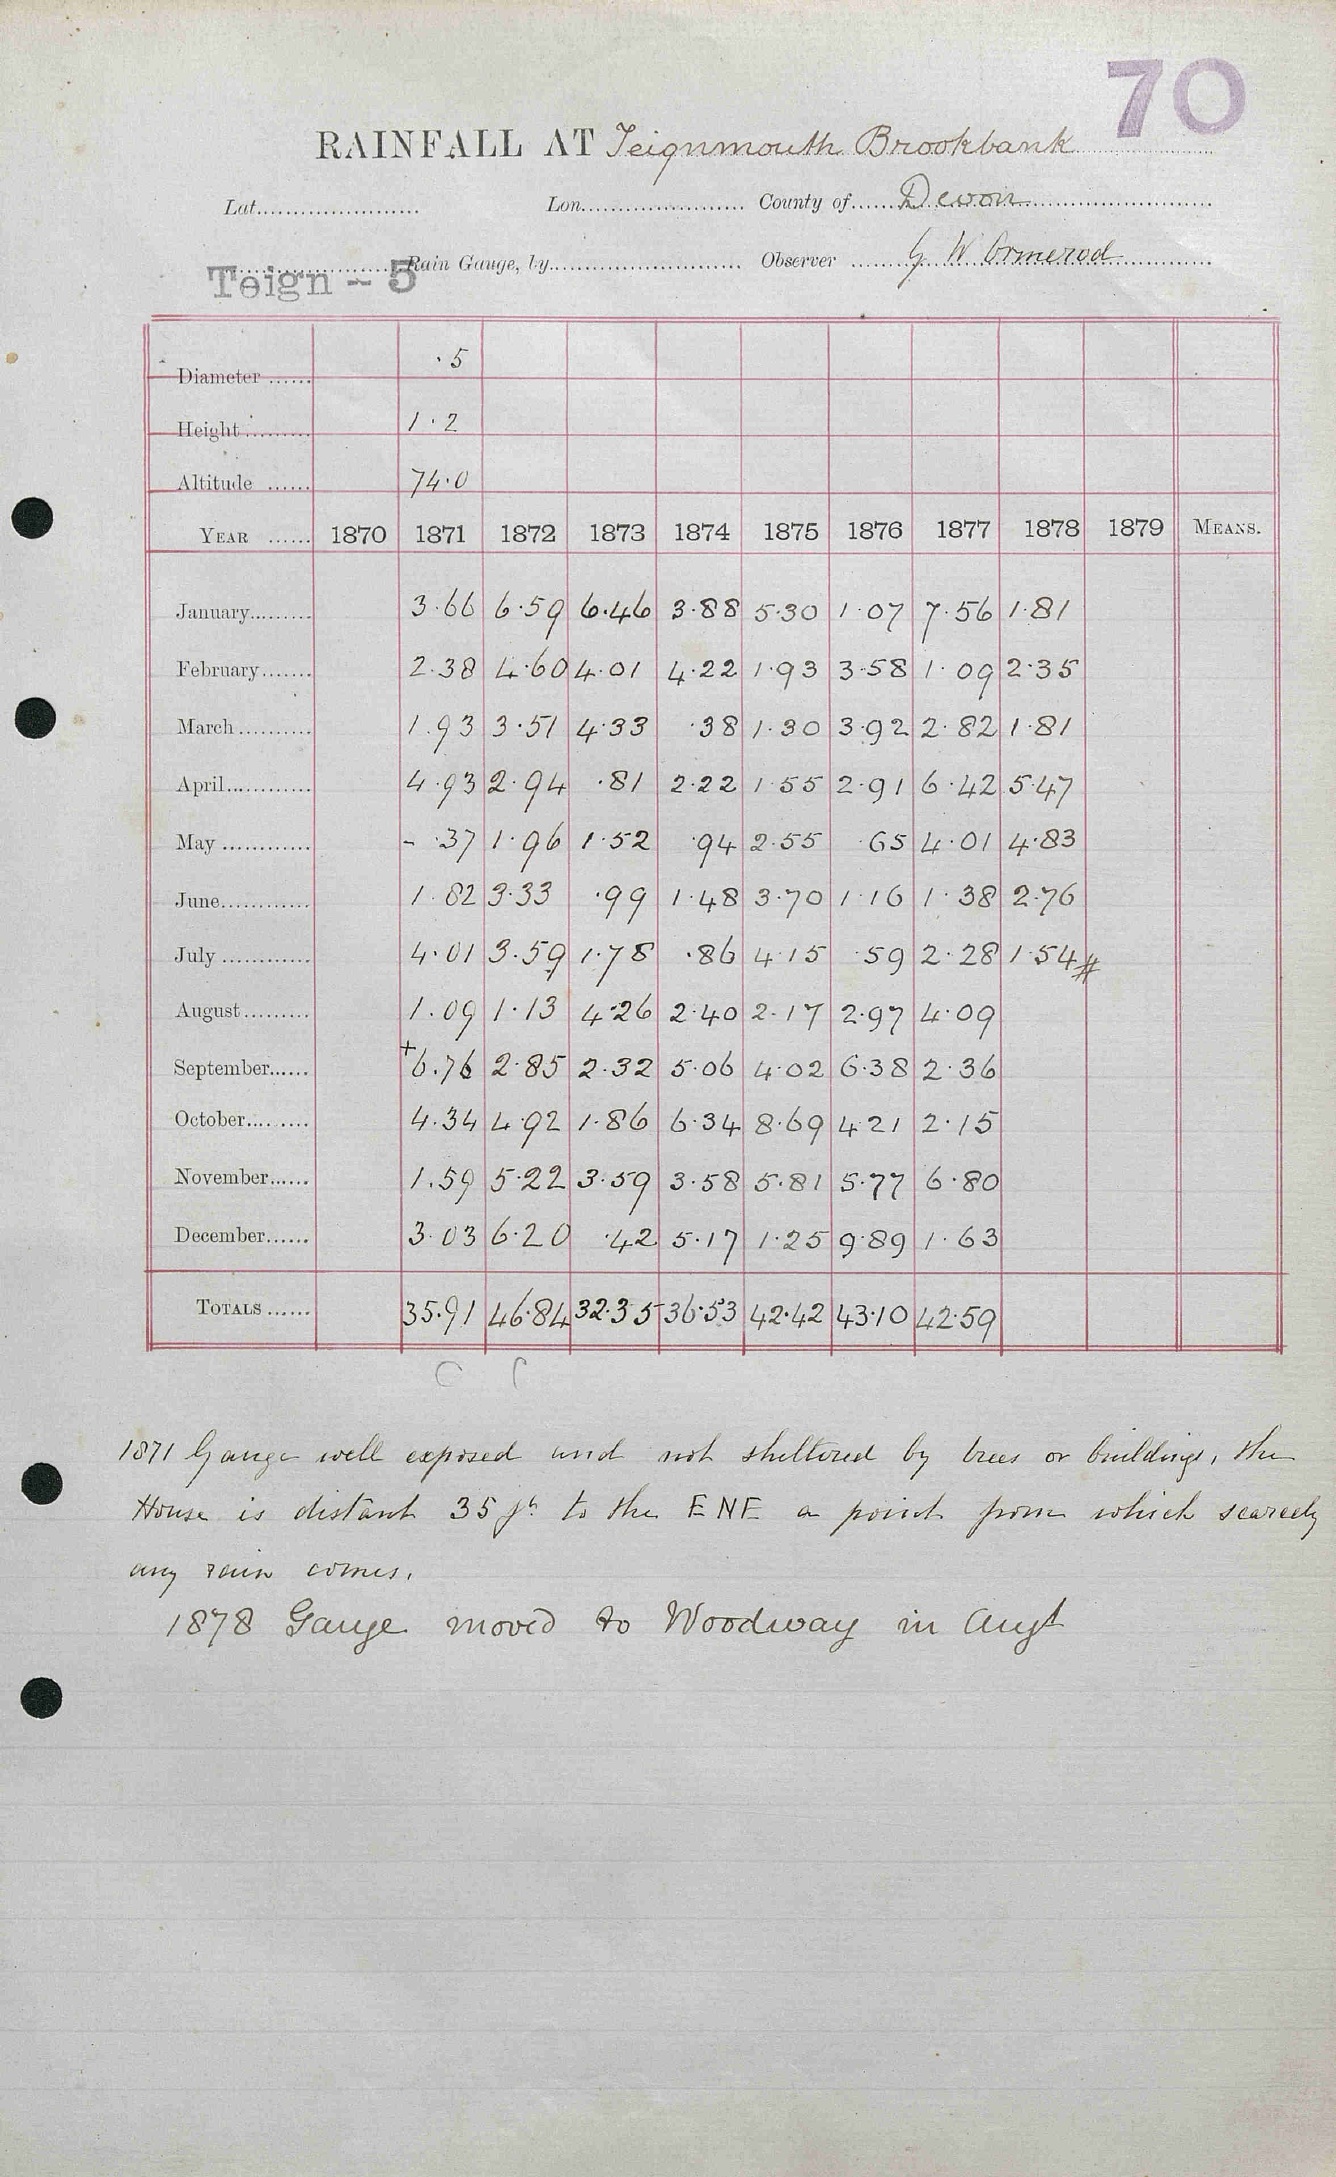 70
RAINFALL AT Teignmouth Brookbank
Lat. Lon. County of Devon
Teign - 5 Rain Gauge, by Observer G W Ormerod
Diameter ·5
Height 1·2
Altitude 74·0
YEAR 1870 1871 1872 1873 1874 1875 1876 1877 1878 1879 MEANS.
January 3·66 6·59 6·46 3·88 5·30 1·07 7·56 1·81
February 2·38 4·60 4·01 4·22 1·93 3·58 1·09 2·35
March 1·93 3·51 4·33 ·38 1·30 3·92 2·82 1·81
April 4·93 2·94 ·81 2·22 1·55 2·91 6·42 5·47
May - ·37 1·96 1·52 ·94 2·55 ·65 4·01 4·83
June 1·82 3·33 ·99 1·48 3·70 1·16 1·38 2·76
July 4·01 3·59 1·78 ·86 4·15 ·59 2·28 1·54 #
August 1·09 1·13 4·26 2·40 2·17 2·97 4·09
September +6·76 2·85 2·32 5·06 4·02 6·38 2·36
October 4·34 4·92 1·86 6·34 8·69 4·21 2·15
November 1·59 5·22 3·59 3·58 5·81 5·77 6·80
December 3·03 6·20 ·42 5·17 1·25 9·89 1·63
TOTALS 35·91 46·84 32·35 36·53 42·42 43·10 42·59
1871 Gauge well exposed and not sheltered by trees or buildings, the
House is distant 35 to the ENE a point from which scarcely
any rain comes.
1878 Gauge moved to Woodway in Augt